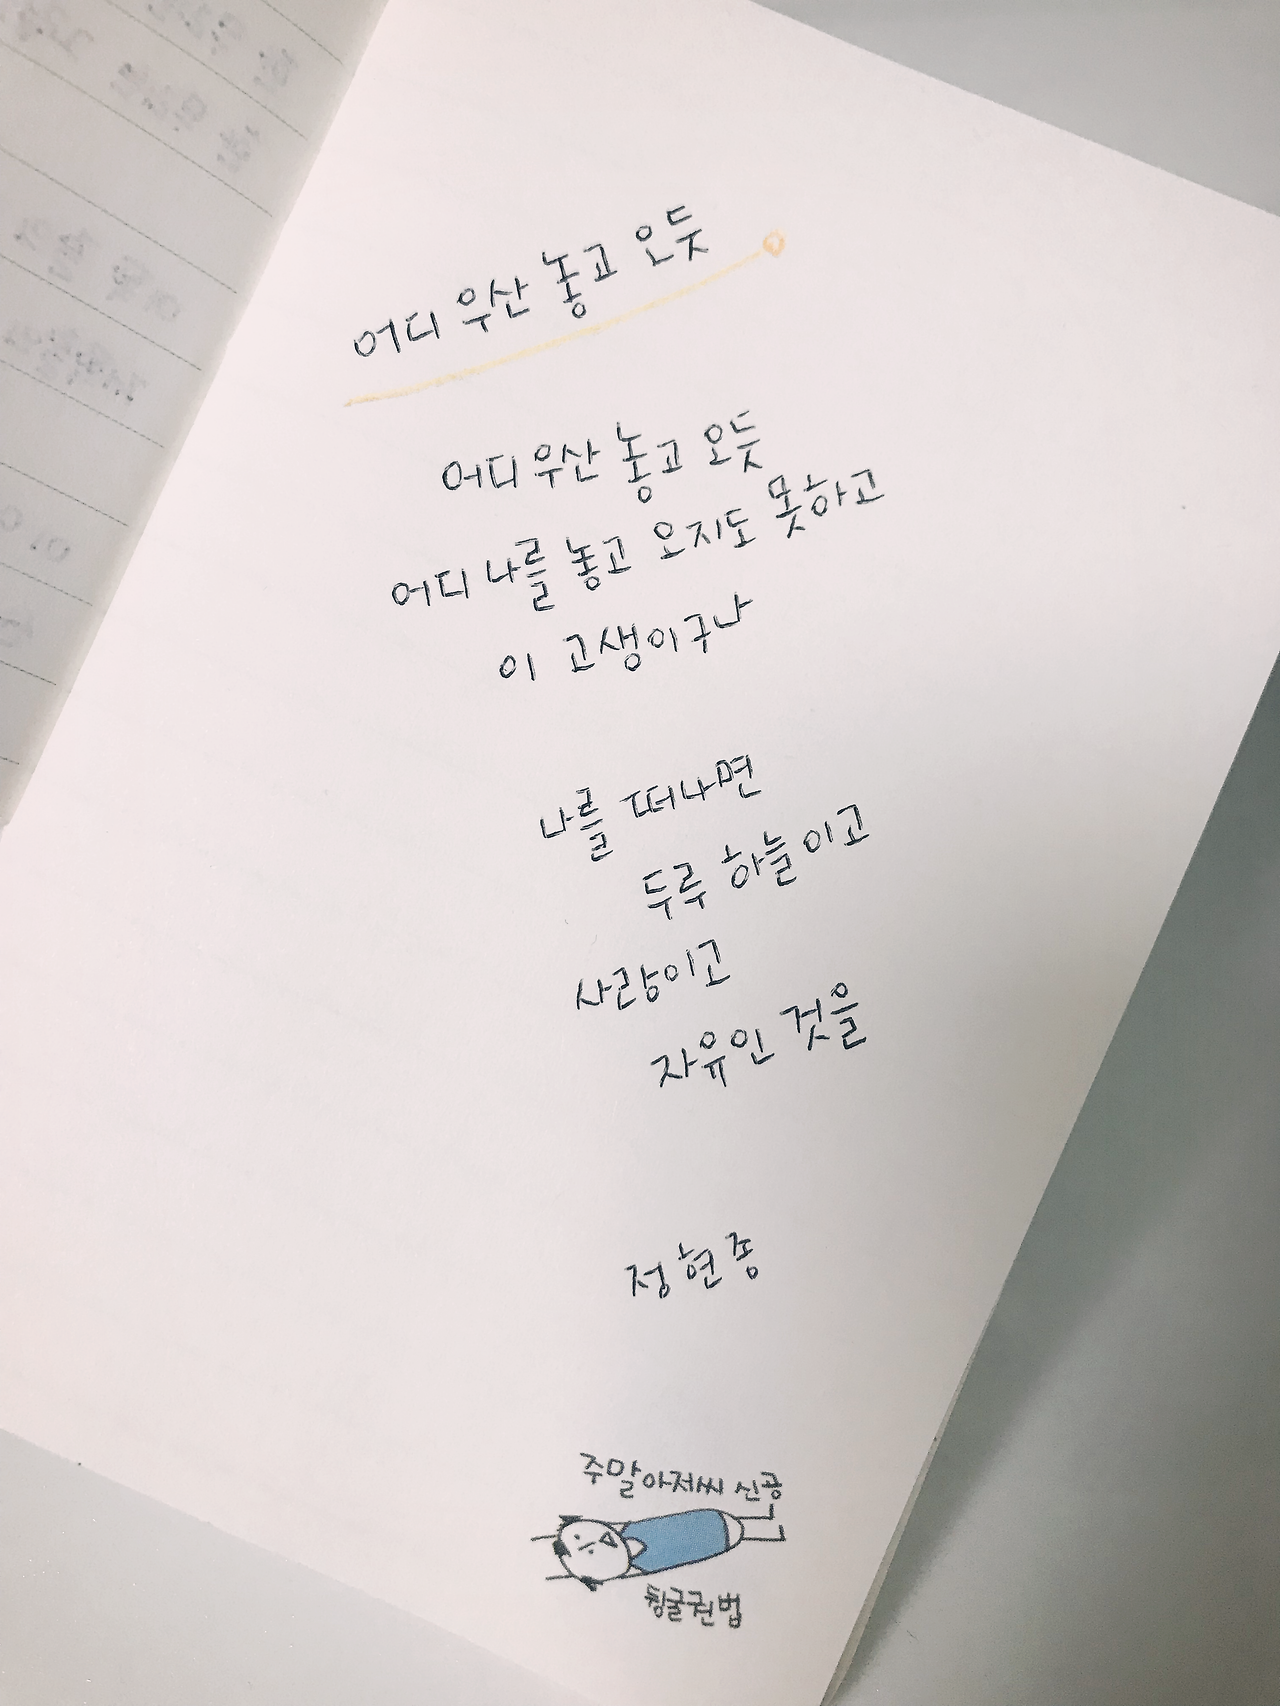 어디 우산 놓고 오듯
어디 우산 놓고 오듯
어디 나를 놓고 오지도 못하고
이 고생이구나
나를 떠나면
두루 하늘이고
사랑이고
자유인 것을
정현종
주말아저씨 신공
뒹굴권법